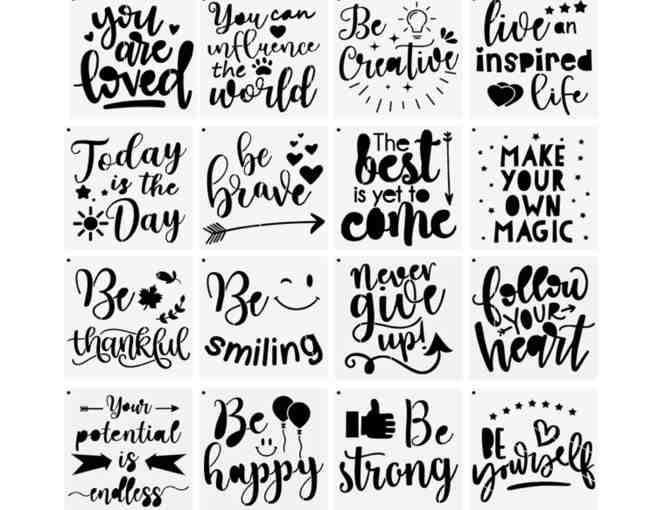 you
are
loved
You can
influence
the
world
Be
Creative
live an
inspired
life
Today
is the
Day
be
brave
The
best
is yet to
come
MAKE
YOUR
OWN
MAGIC
Be
thankful
Be
smiling
never
give
up!
follow
YOUR
heart
Your
potential
is
endless
Be
happy
Be
strong
BE
yourself